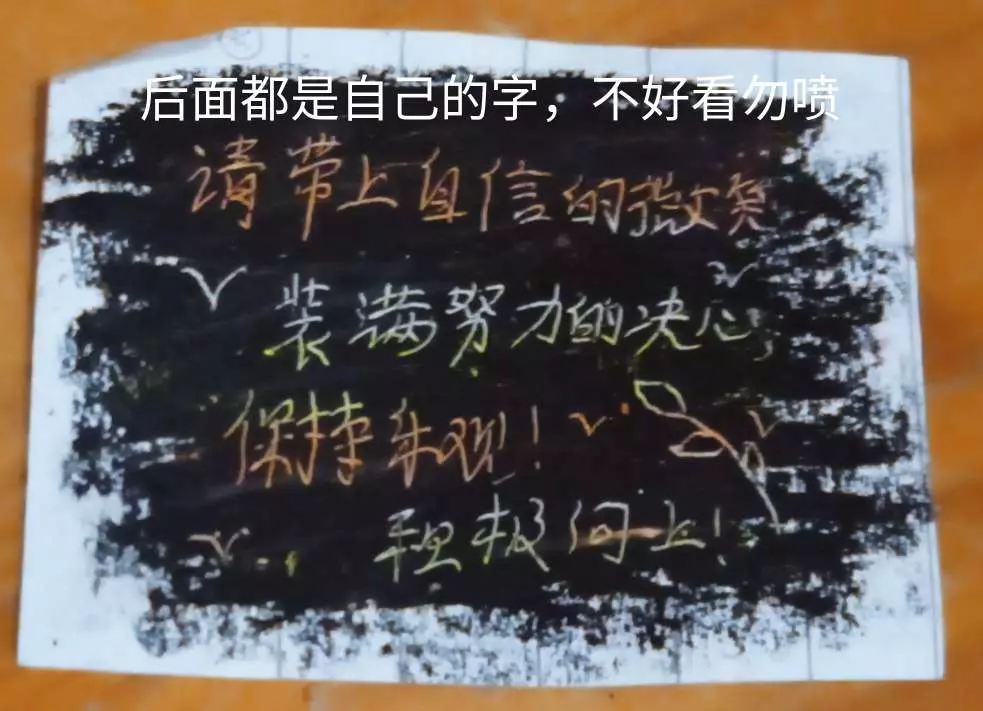 后面都是自己的字，不好看勿喷
请带上自信的微笑
装满努力的决心，
保持乐观！
积极向上！